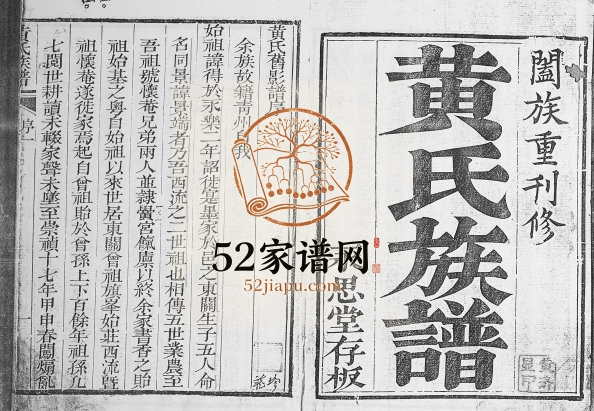 闔族重刊修
黃氏族譜
思堂存板
黃氏舊影譜
余族故籍青州自我
始祖諱得於永樂二年詔徙定畢家於邑之東關生子五人命
名同景諱景端者乃吾西流之二世祖也相傳五世業農至
吾祖號懷菴兄弟兩人並隸黌宮餼廩以終余家書香之貽
祖始基之粵自始祖以來世居東關曾祖旗峯始莊西流曁
祖懷菴遂徙家焉起自曾祖貽於曾孫上下百餘年祖孫凡
七閱世耕讀未輟家聲未墜至崇禎十七年甲申春闖煽亂
黃氏族譜
序
一
52家谱网
52jiapu.com